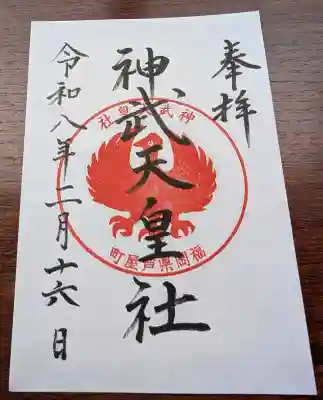 奉拝
神武天皇社
神武天皇社
福岡県芦屋町
令和八年二月十六日